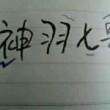 神羽七